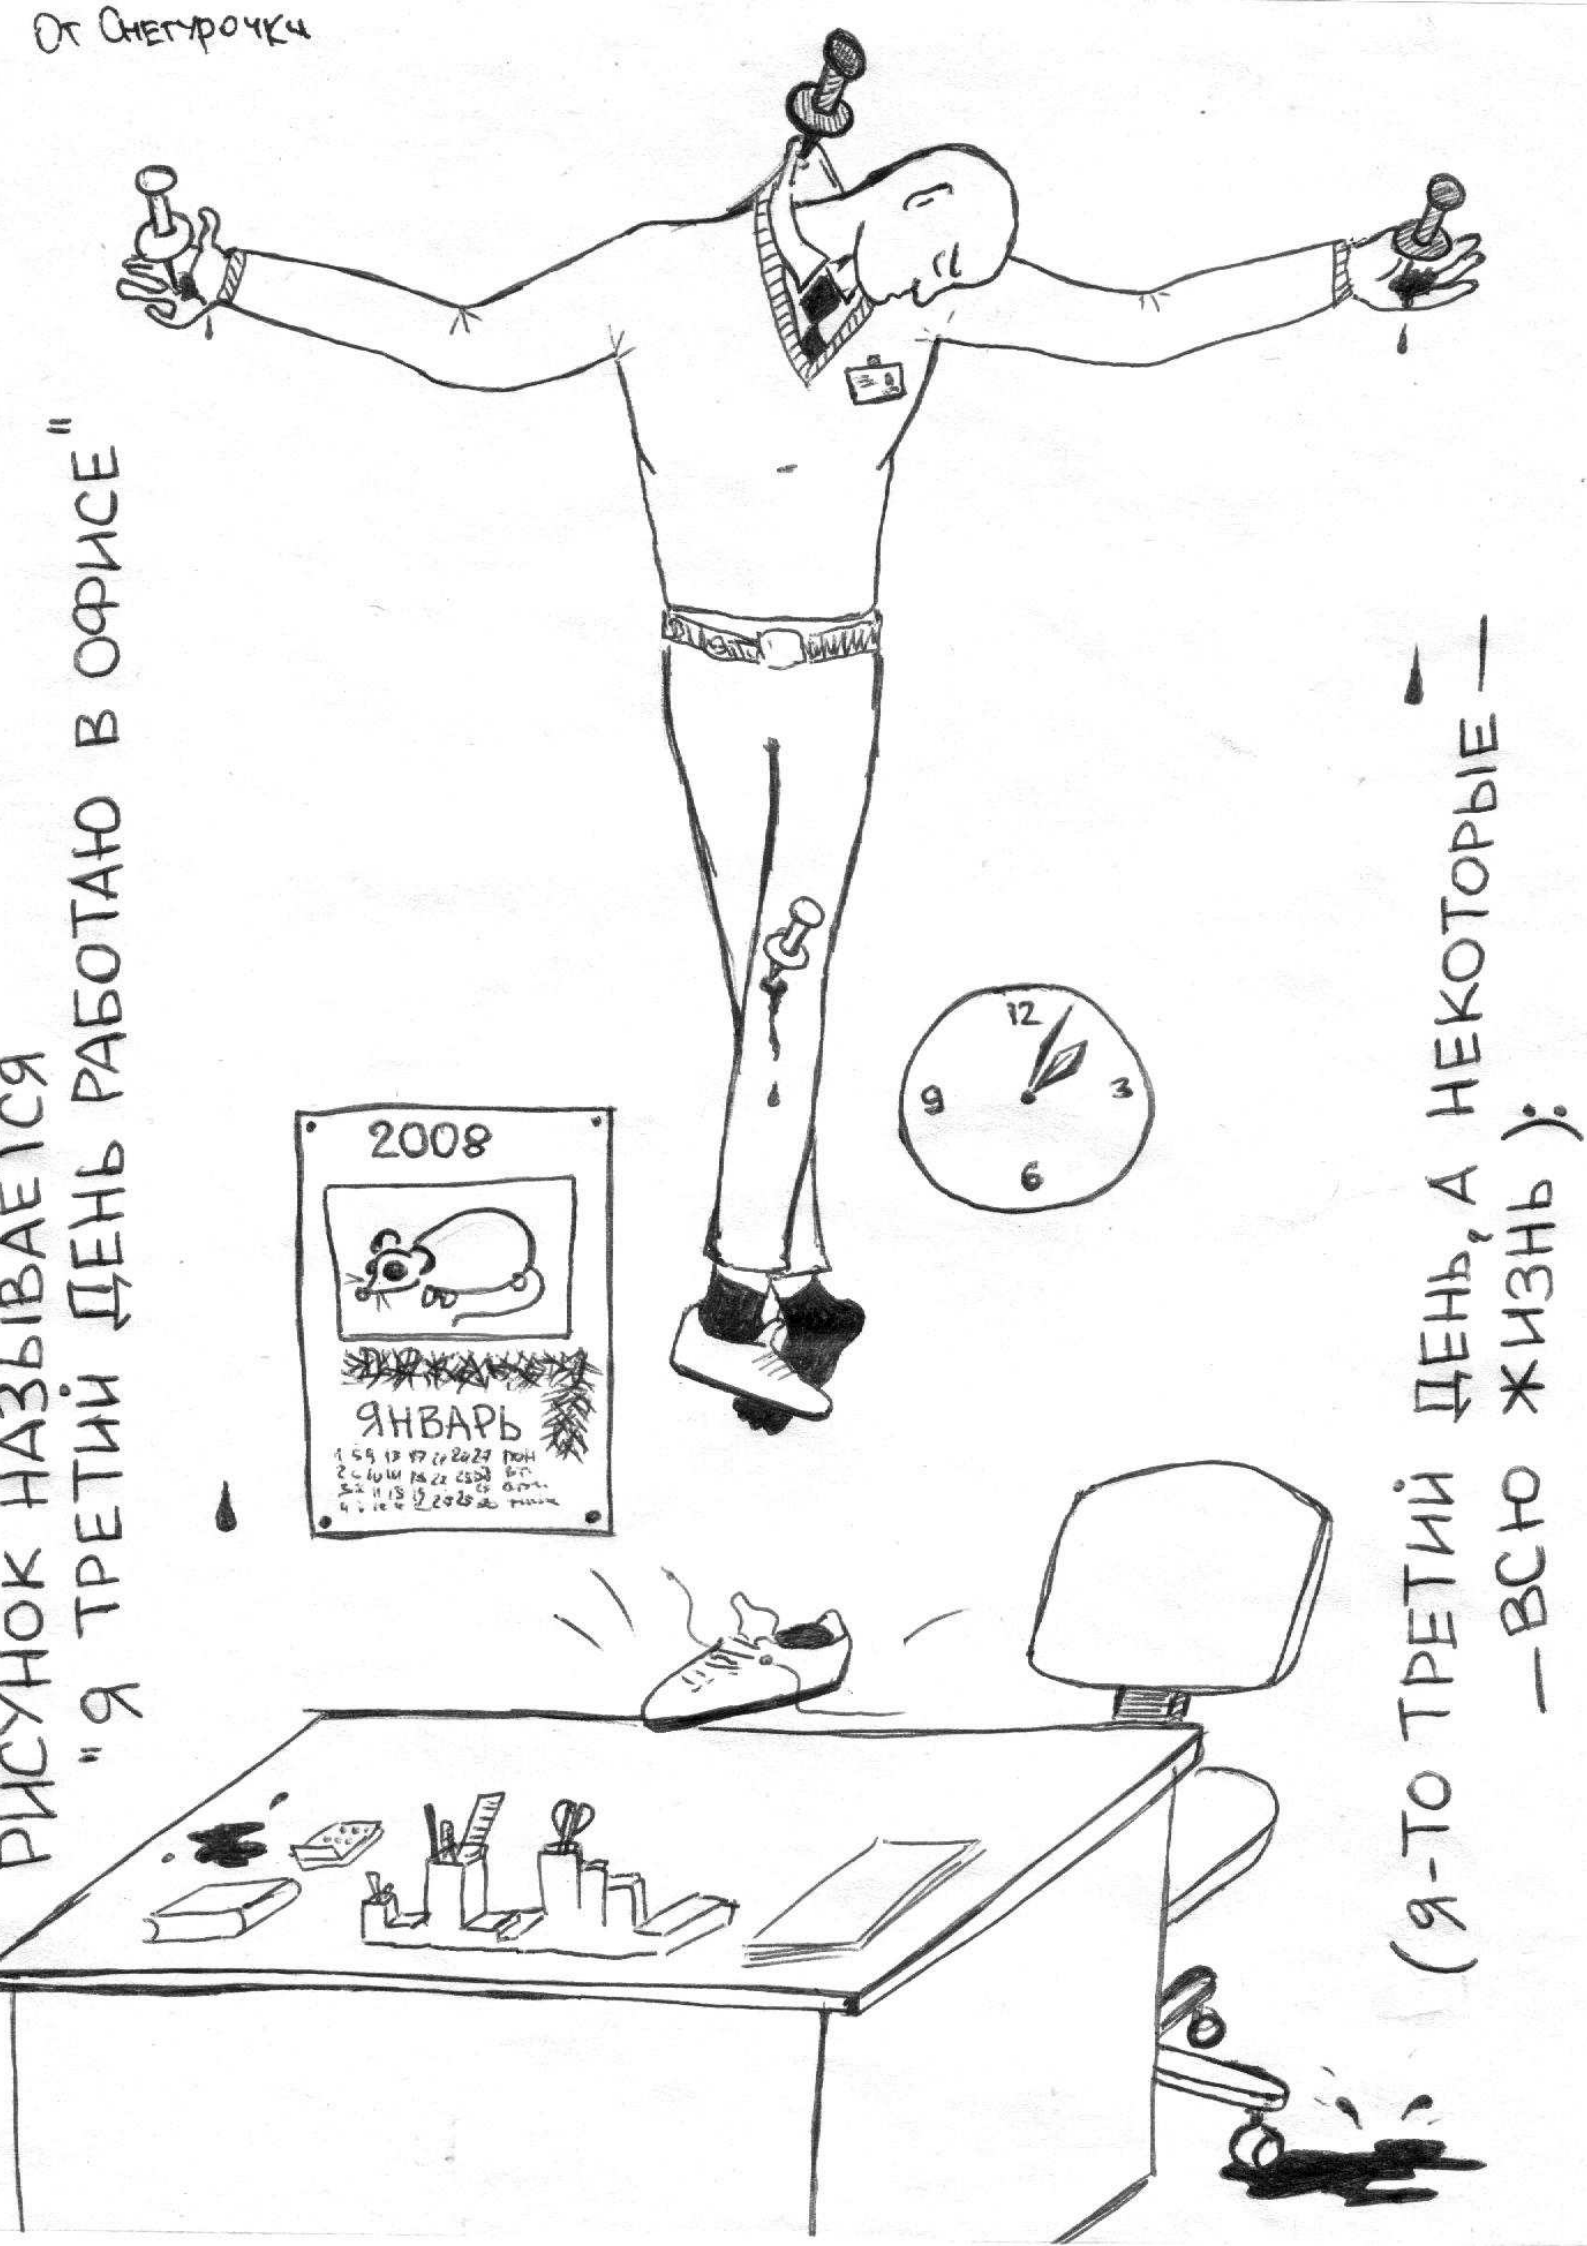 От Снегурочки
РИСУНОК НАЗЫВАЕТСЯ
"Я ТРЕТИЙ ДЕНЬ РАБОТАЮ В ОФИСЕ"
2008
ЯНВАРЬ
12
3
6
9
(Я-ТО ТРЕТИЙ ДЕНЬ, А НЕКОТОРЫЕ —
— ВСЮ ЖИЗНЬ ):